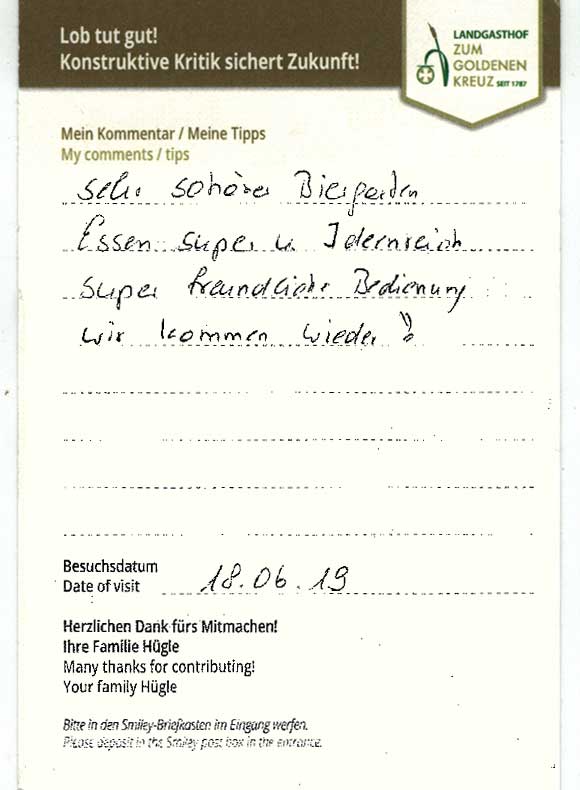 Lob tut gut!
Konstruktive Kritik sichert Zukunft!
LANDGASTHOF
ZUM
GOLDENEN
KREUZ SEIT 1787
Mein Kommentar / Meine Tipps
My comments / tips
sehr schöner Biergarten
Essen super u Ideenreich
super freundliche Bedienung
wir kommen wieder!
Besuchsdatum
Date of visit 18.06.19
Herzlichen Dank fürs Mitmachen!
Ihre Familie Hügle
Many thanks for contributing!
Your family Hügle
Bitte in den Smiley-Briefkasten im Eingang werfen.
Please deposit in the Smiley post box in the entrance.